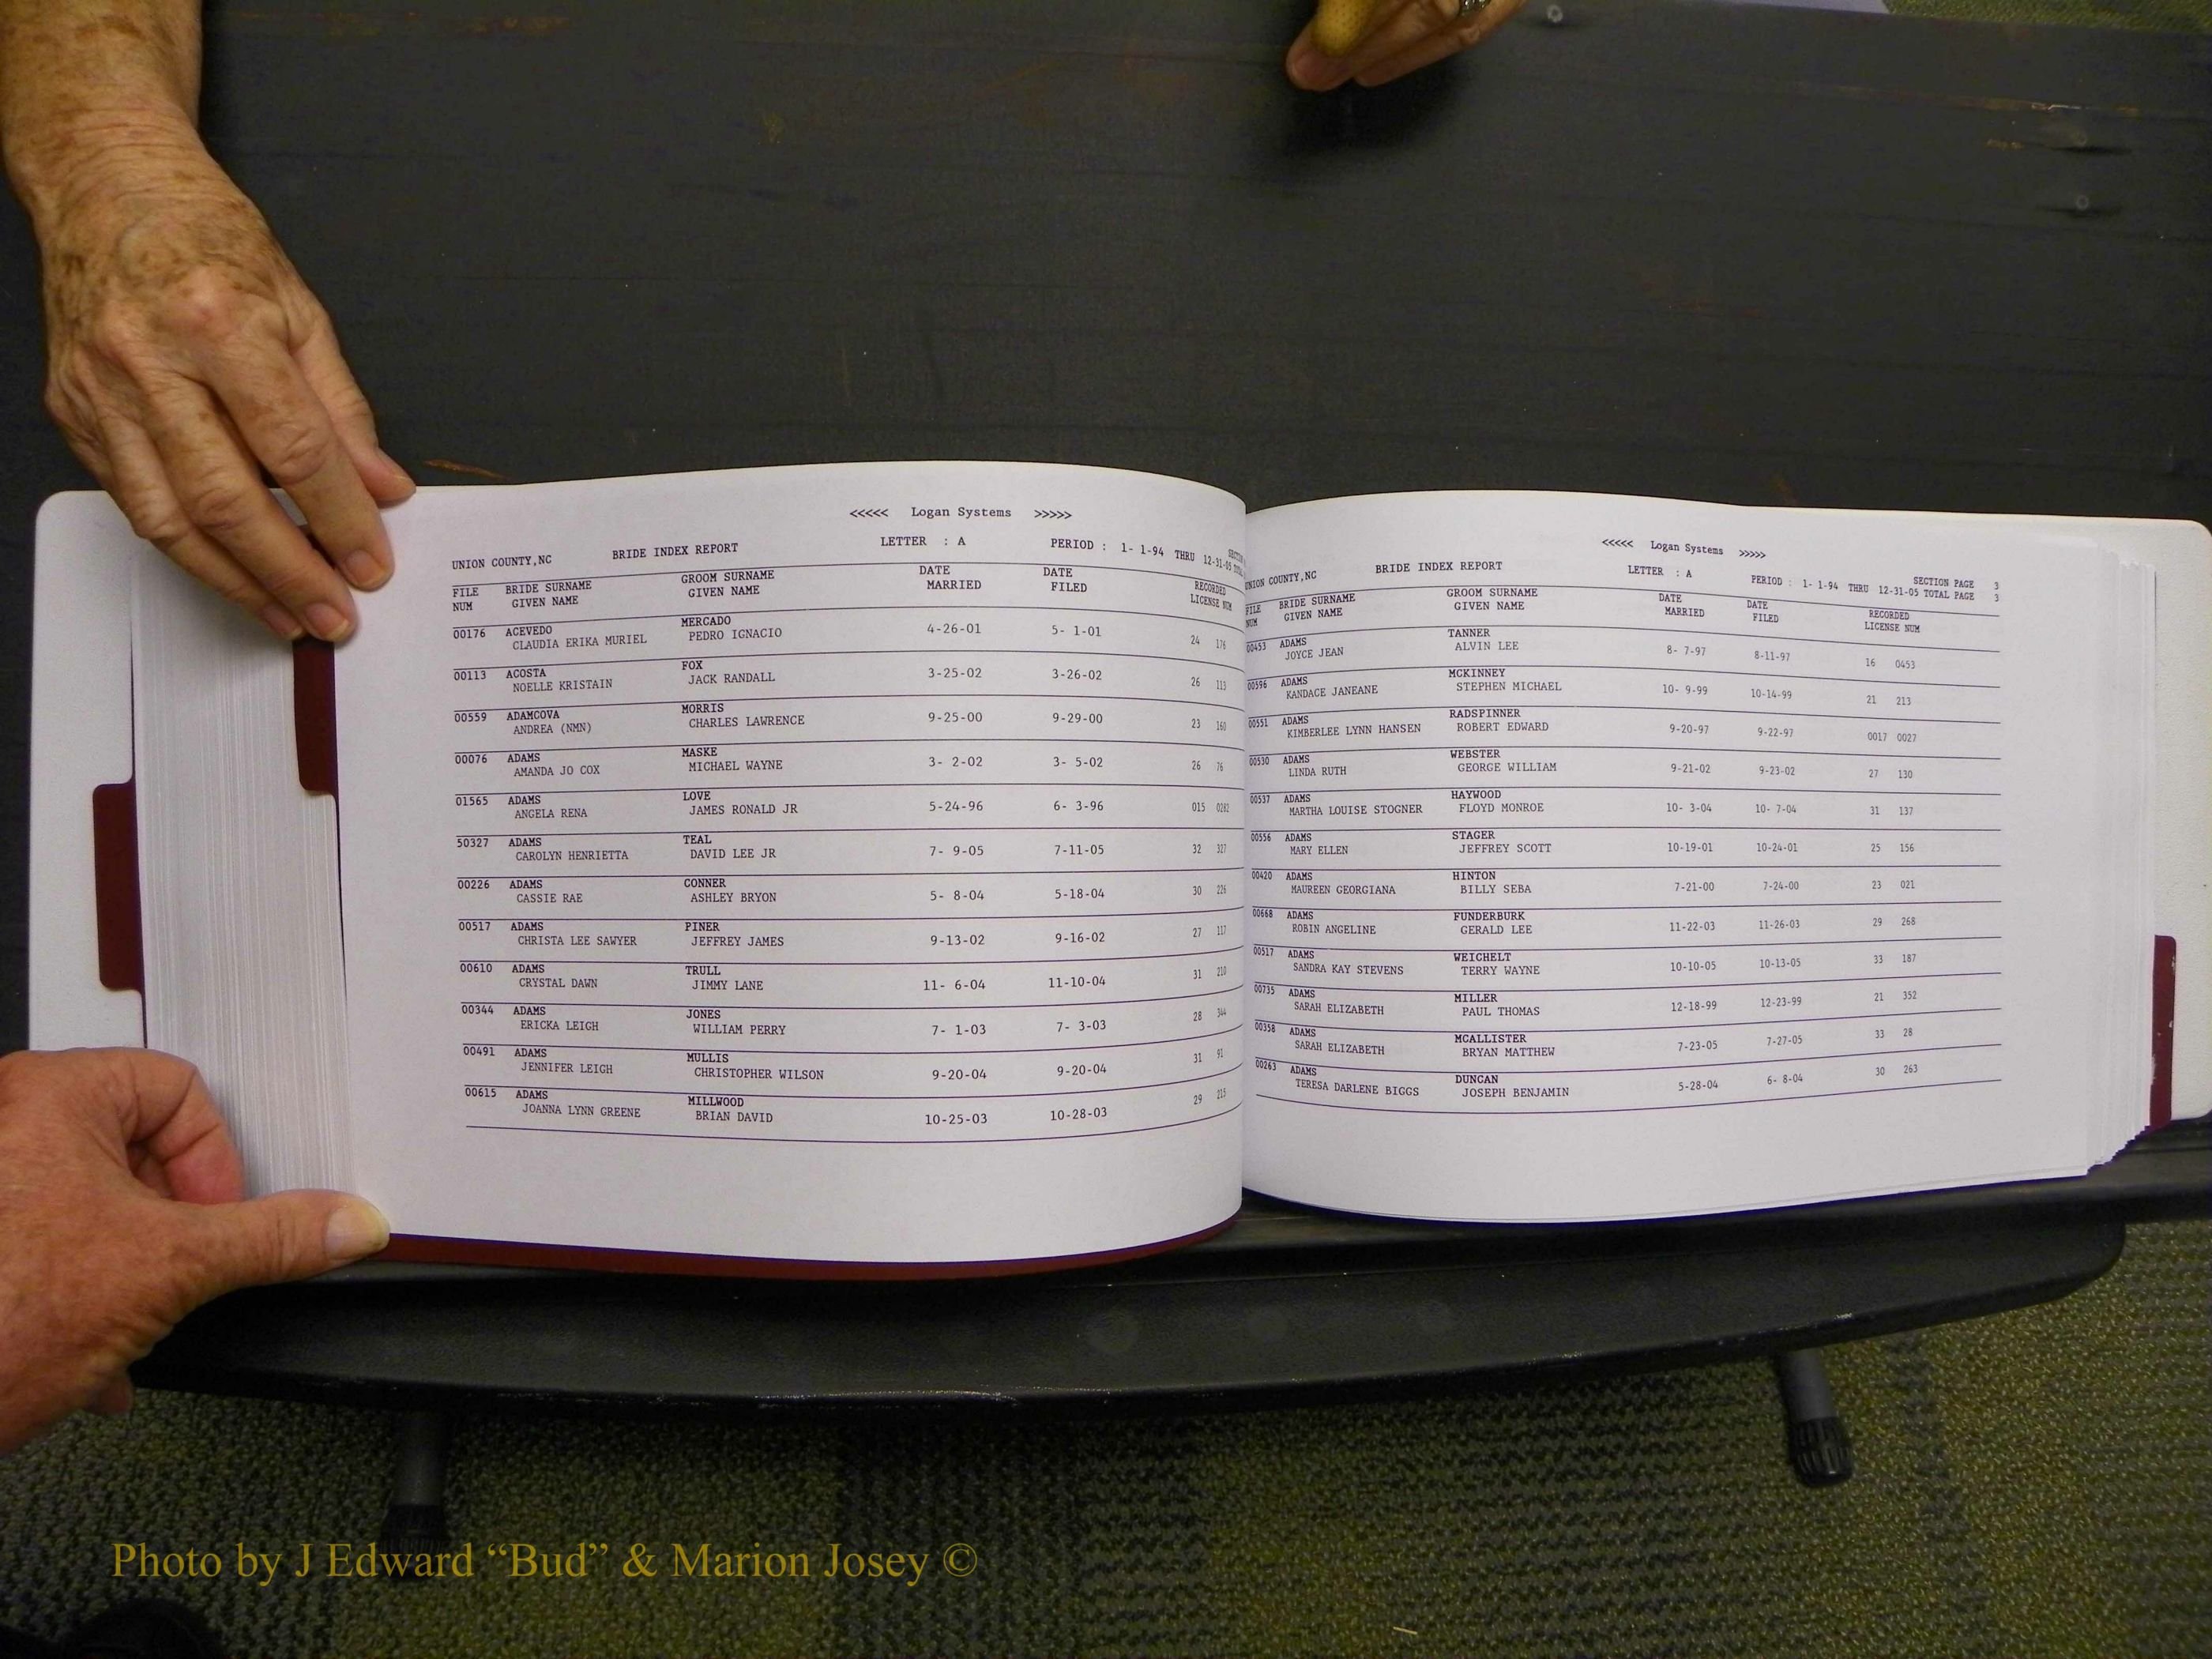 <<<<< Logan Systems >>>>>
UNION COUNTY,NC BRIDE INDEX REPORT LETTER : A PERIOD : 1- 1-94 THRU 12-31-05
FILE BRIDE SURNAME GROOM SURNAME DATE DATE RECORDED
NUM GIVEN NAME GIVEN NAME MARRIED FILED LICENSE NUM
00176 ACEVEDO MERCADO 4-26-01 5- 1-01 24 176
CLAUDIA ERIKA MURIEL PEDRO IGNACIO
00113 ACOSTA FOX 3-25-02 3-26-02 26 113
NOELLE KRISTAIN JACK RANDALL
00559 ADAMCOVA MORRIS 9-25-00 9-29-00 23 160
ANDREA (NMN) CHARLES LAWRENCE
00076 ADAMS MASKE 3- 2-02 3- 5-02 26 76
AMANDA JO COX MICHAEL WAYNE
01565 ADAMS LOVE 5-24-96 6- 3-96 015 0282
ANGELA RENA JAMES RONALD JR
50327 ADAMS TEAL 7- 9-05 7-11-05 32 327
CAROLYN HENRIETTA DAVID LEE JR
00226 ADAMS CONNER 5- 8-04 5-18-04 30 226
CASSIE RAE ASHLEY BRYON
00517 ADAMS PINER 9-13-02 9-16-02 27 117
CHRISTA LEE SAWYER JEFFREY JAMES
00610 ADAMS TRULL 11- 6-04 11-10-04 31 210
CRYSTAL DAWN JIMMY LANE
00344 ADAMS JONES 7- 1-03 7- 3-03 28 344
ERICKA LEIGH WILLIAM PERRY
00491 ADAMS MULLIS 9-20-04 9-20-04 31 91
JENNIFER LEIGH CHRISTOPHER WILSON
00615 ADAMS MILLWOOD 10-25-03 10-28-03 29 215
JOANNA LYNN GREENE BRIAN DAVID
<<<<< Logan Systems >>>>>
UNION COUNTY,NC BRIDE INDEX REPORT LETTER : A SECTION PAGE 3
PERIOD : 1- 1-94 THRU 12-31-05 TOTAL PAGE 3
FILE BRIDE SURNAME GROOM SURNAME DATE DATE RECORDED
NUM GIVEN NAME GIVEN NAME MARRIED FILED LICENSE NUM
00453 ADAMS TANNER 8- 7-97 8-11-97 16 0453
JOYCE JEAN ALVIN LEE
00596 ADAMS MCKINNEY 10- 9-99 10-14-99 21 213
KANDACE JANEANE STEPHEN MICHAEL
00551 ADAMS RADSPINNER 9-20-97 9-22-97 0017 0027
KIMBERLEE LYNN HANSEN ROBERT EDWARD
00530 ADAMS WEBSTER 9-21-02 9-23-02 27 130
LINDA RUTH GEORGE WILLIAM
00537 ADAMS HAYWOOD 10- 3-04 10- 7-04 31 137
MARTHA LOUISE STOGNER FLOYD MONROE
00556 ADAMS STAGER 10-19-01 10-24-01 25 156
MARY ELLEN JEFFREY SCOTT
00420 ADAMS HINTON 7-21-00 7-24-00 23 021
MAUREEN GEORGIANA BILLY SEBA
00668 ADAMS FUNDERBURK 11-22-03 11-26-03 29 268
ROBIN ANGELINE GERALD LEE
00517 ADAMS WEICHELT 10-10-05 10-13-05 33 187
SANDRA KAY STEVENS TERRY WAYNE
00735 ADAMS MILLER 12-18-99 12-23-99 21 352
SARAH ELIZABETH PAUL THOMAS
00358 ADAMS MCALLISTER 7-23-05 7-27-05 33 28
SARAH ELIZABETH BRYAN MATTHEW
00263 ADAMS DUNCAN 5-28-04 6- 8-04 30 263
TERESA DARLENE BIGGS JOSEPH BENJAMIN
Photo by J Edward “Bud” & Marion Josey ©